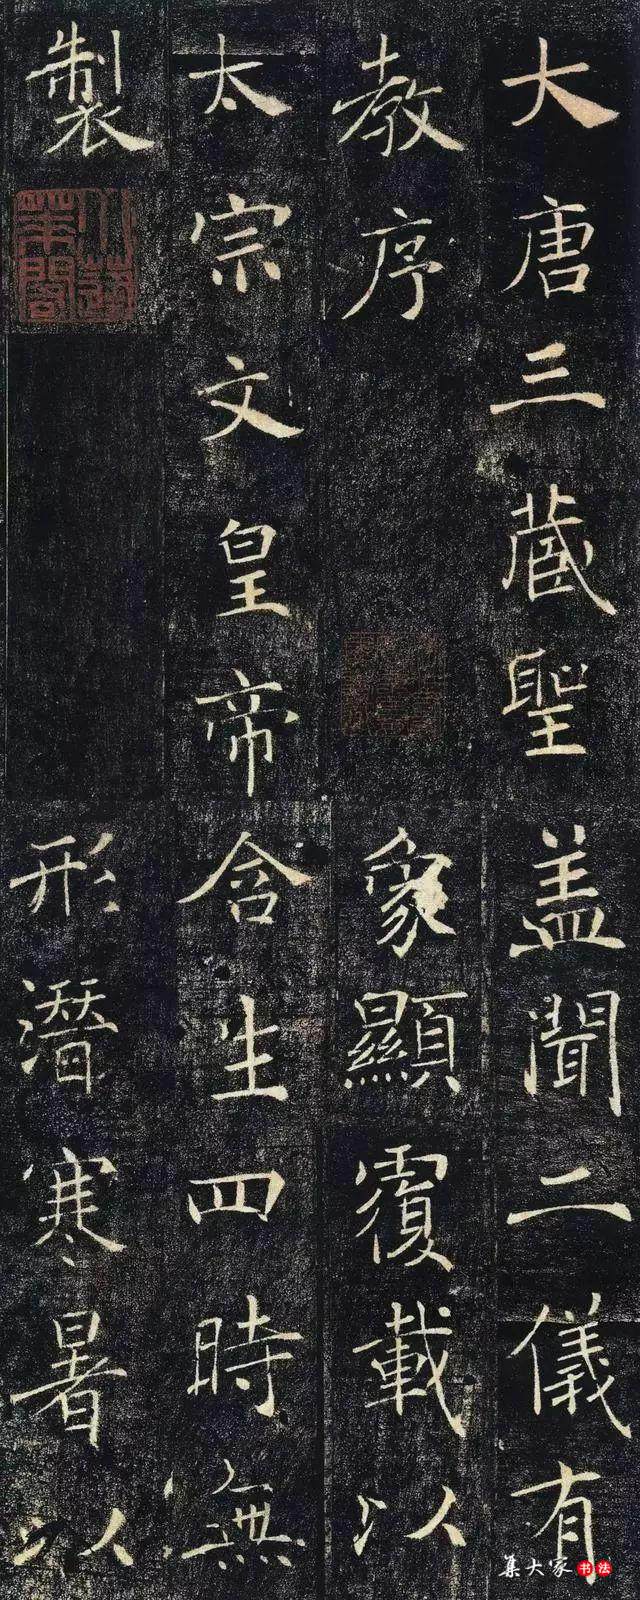 大唐三藏聖
教序
太宗文皇帝
製
蓋聞二儀有
象顯覆載以
含生四時無
形潛寒暑以
集大家书法